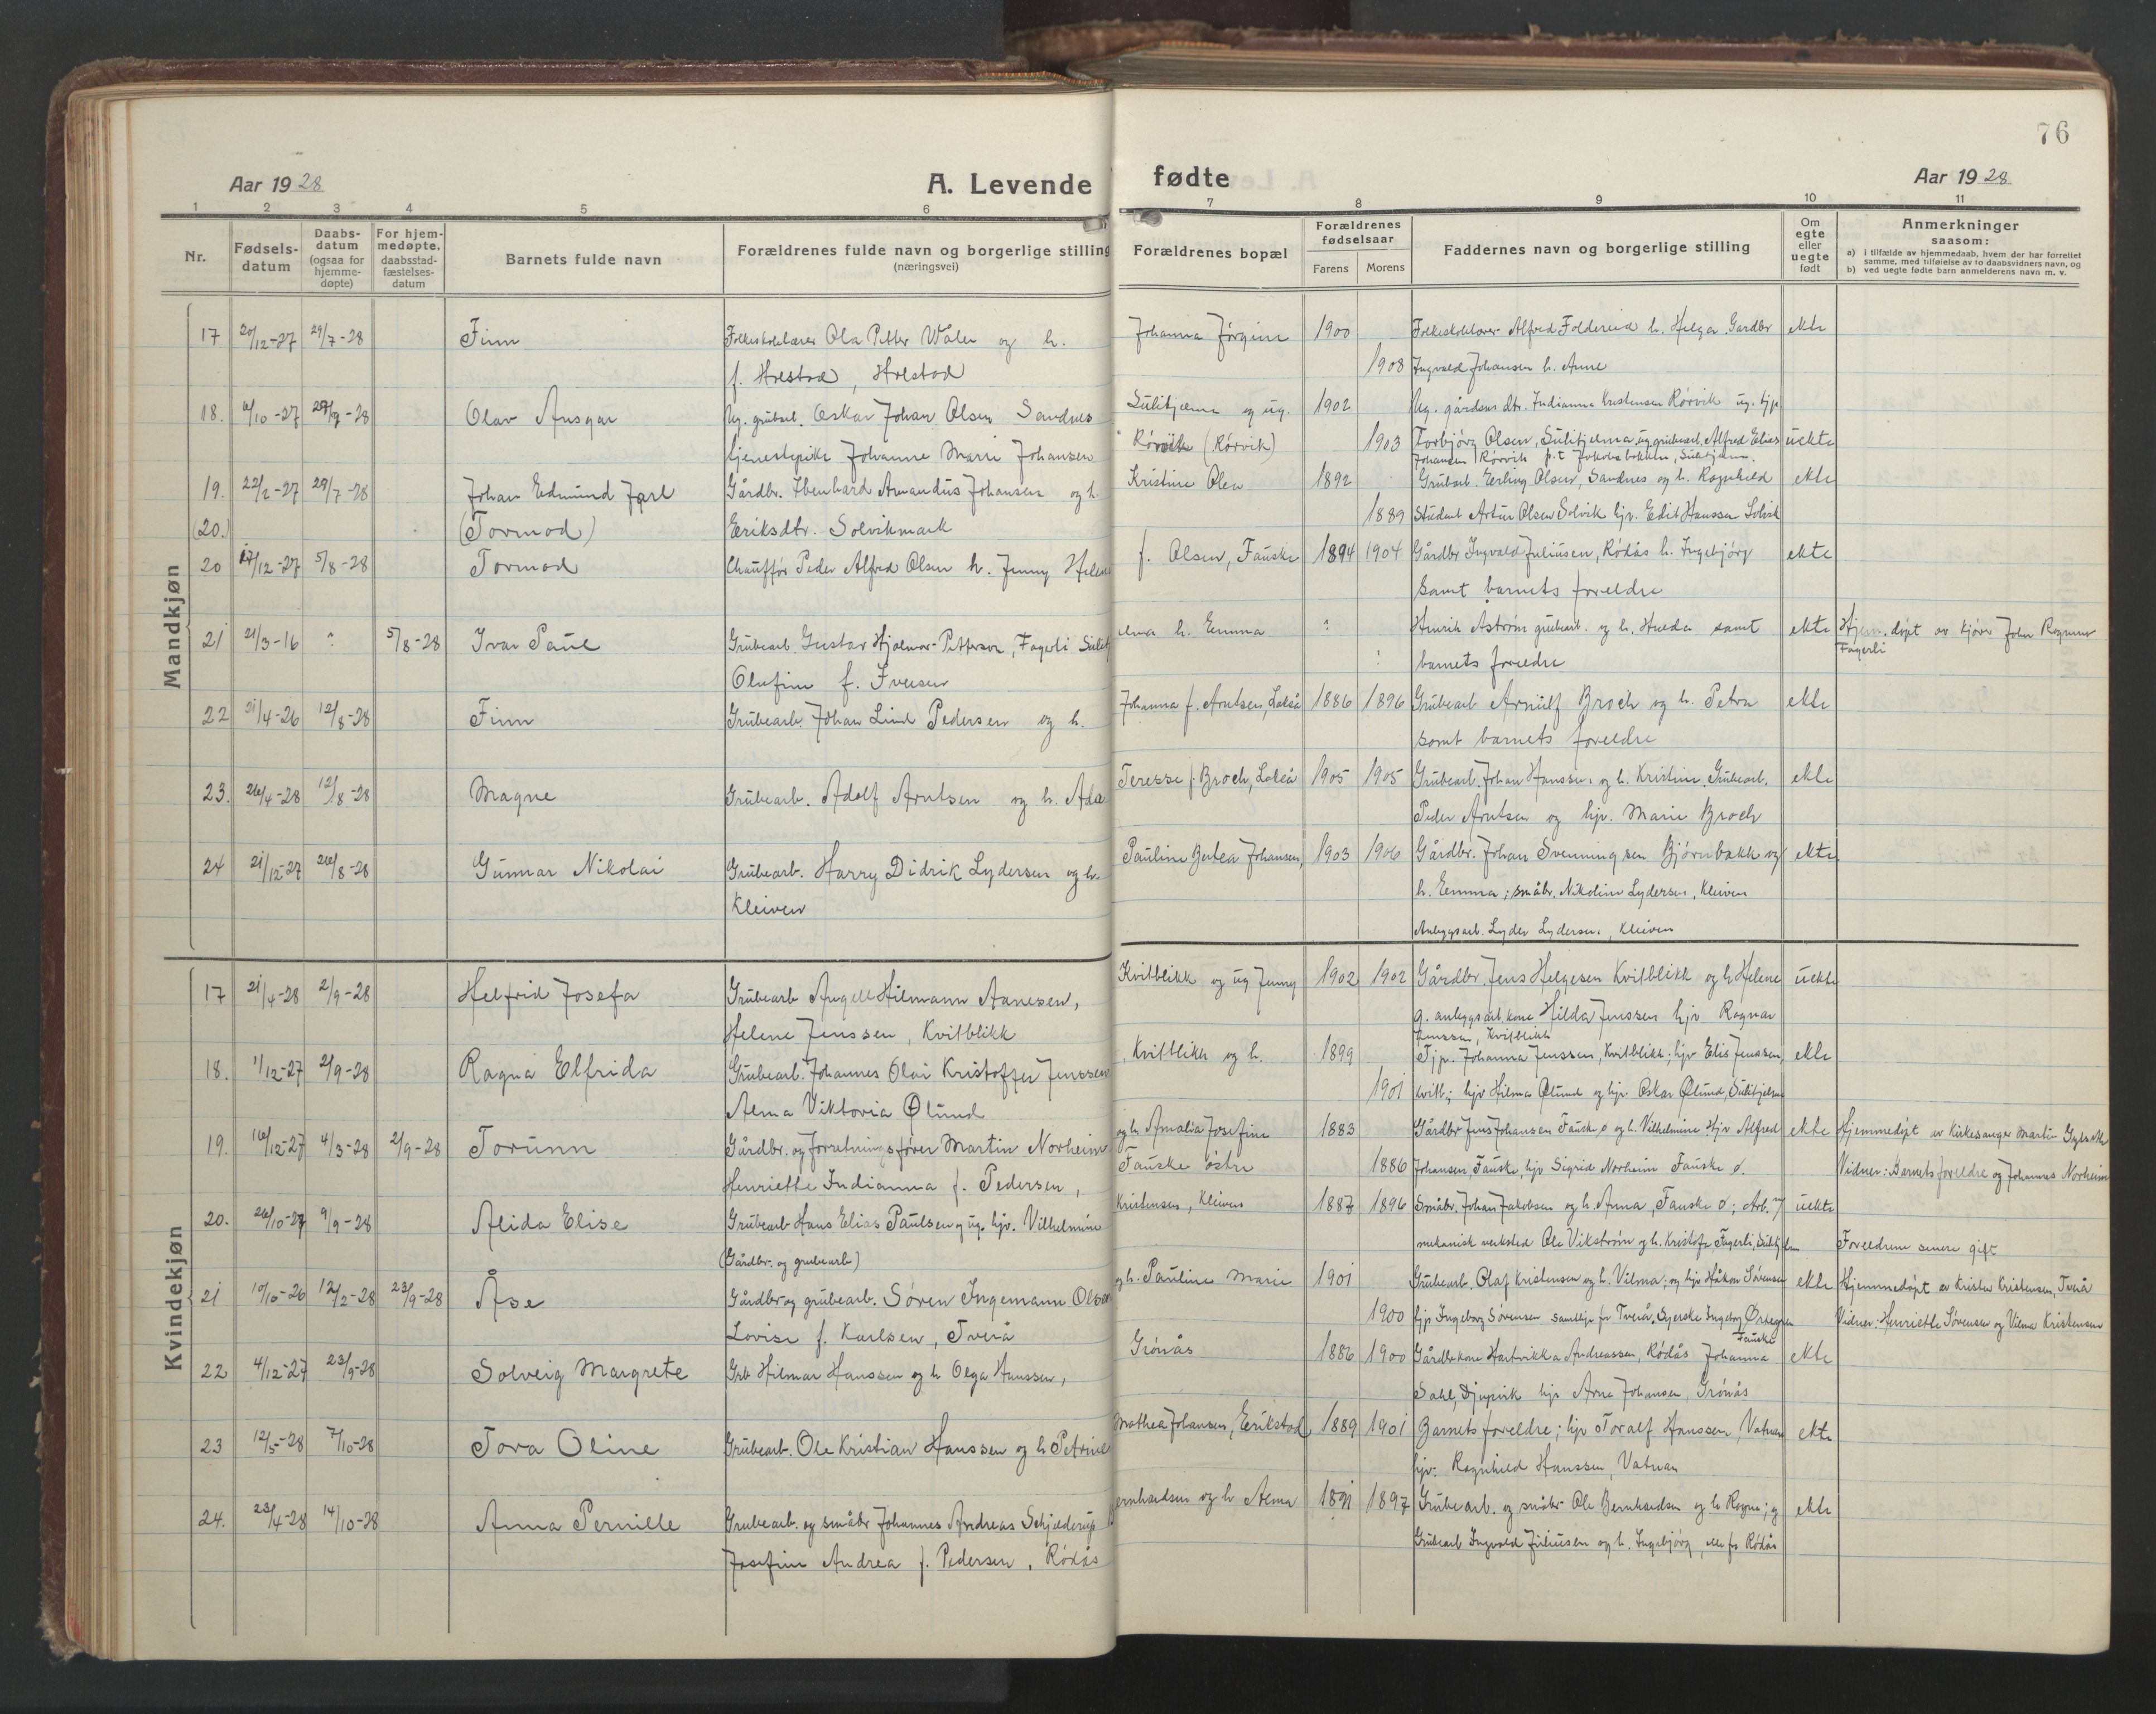 76
Aar 1928
A. Levende fødte
Aar 1928
1 2 3 4 5 6 7 8 9 10 11
Nr.
Fødsels-
datum
Daabs-
datum
(ogsaa for
hjemme-
døpte)
For hjem-
medøpte,
daabsstad-
fæstelses-
datum
Barnets fulde navn
Forældrenes fulde navn og borgerlige stilling
(næringsvei)
Forældrenes bopæl
Forældrenes
fødselsaar
Farens Morens
Faddernes navn og borgerlige stilling
Om
egte
eller
uegte
født
Anmerkninger
saasom:
a) i tilfælde av hjemmedaab, hvem der har forrettet
samme, med tilføielse av to daabsvidners navn, og
b) ved uegte fødte barn anmelderens navn m. v.
Mandkjøn
17 20/12-27 29/7-28 Finn Folkeskolelærer Ola Petter Våler og h. Johanna Jørgine 1900 Folkeskolelærer Alfred Foldereid h. Helga. Gardbr ekte
f. Holstad, Holstad 1908 Ingvald Johansen h. Anne
18. 6/10-27 29/7-28 Olav Ansgar Ug. grubearb. Oskar Johan Olsen Sandnes Sulitjelma og ug. 1902 Ug. gårdsm dtr. Indianna Kristensen Rørvik ug. tjp.
tjenestepike Johanne Marie Johansen Rørvik (Rørvik) 1903 Torbjørg Olsen, Sulitjelma, ug grubearb. Alfred Elias uekte
Johansen Rørvik p.t Jakobsbakken, Sulitjelma.
19. 22/2-27 29/7-28 Johan Edmund Jarl Gårdbr. Ibenhard Amandus Johansen og h. Kristine Olea 1892 Grubearb. Erling Olsen, Sandnes og h. Ragnhild ekte
(20.) (Tormod) Eriksdtr. Solvikmark 1889 Student Artur Olsen Solvik hjv. Edit Hanssen Solvik
20 17/12-27 5/8-28 Tormod Chauffør Peder Alfred Olsen h. Jenny Helene f. Olsen, Fauske 1894 1904 Gårdbr Ingvald Juliussen, Rødås h. Ingebjørg ekte
samt barnets foreldre
21 21/3-16 ? 5/8-28 Ivar Paul Grubearb. Gustav Hjalmar Pettersen, Fagerli Sulitjelma h. Emma ? Henrik Åstrøm grubearb. og h. Hulda samt ekte Hjem. døpt av kjører John Ragnar
Fagerli
Olufine f. Iversen ? barnets foreldre
22 21/4-26 12/8-28 Finn Grubearb. Johan Lind Pedersen og h. Johanna f. Arntsen, Lakså 1886 1896 Grubearb Arnulf Broch og h. Petra ekte
samt barnets foreldre
23. 26/4-28 12/8-28 Magne Grubearb. Adolf Arntsen og h. Ada Teresse f. Broch, Lakså 1905 1905 Grubearb. Johan Hanssen og h. Kristine. Grubearb. ekte
Peder Arntsen og hjv. Marie Broch
24 21/12-27 26/8-28 Gunnar Nikolai Grubearb. Harry Didrik Lydersen og h. Pauline Bertea Johansen, 1903 1906 Gårdbr. Johan Svenningsen Bjørnbakk og ekte
Kleiven h. Emma; småbr. Nikoline Lydersen, Kleiven
Anleggsarb. Lyder Lydersen, Kleiven
Kvindekjøn
17 21/4-28 2/9-28 Helfrid Josefa Grubearb Angell Hilmann Aanesen, Kvitblikk og ug Jenny 1902 1902 Gårdbr. Jens Helgesen Kvitblikk og h Helene uekte
Helene Jenssen, Kvitblikk g. anleggsarb. kone Hilda Jenssen hjv Ragnar
Jenssen, Kvitblikk
18. 1/12-27 2/9-28 Ragna Elfrida Grubearb. Johannes Olai Kristoffer Jenssen, Kvitblikk og h. 1899 Tjp. Johanna Jenssen, Kvitblikk; hjv Elis Jenssen, ekte
Alma Viktoria Ølund 1901 Kvitb.; hjv Hilma Ølund og hjv. Oskar Ølund, Sulitjelma
19. 16/12-27 4/3-28 2/9-28 Torunn Gårdbr. og forretningsfører Martin Norheim og h Amalia Josefine 1883 Gårdbr Jens Johansen Fauske ø og h. Vilhelmine hjv Alfred ekte Hjemmedøpt av kirkesanger Martin
Henriette Indianna f. Pedersen, Fauske østre 1886 Johansen, Fauske, hjv Sigrid Norheim Fauske ø. Vidner: Barnets foreldre og Johannes Norheim
20. 26/10-27 9/9-28 Alida Elise Grubearb Hans Elias Paulsen og ug. hjv. Vilhelmine Kristensen, Kleiven 1887 1896 Småbr. Johan Jakobsen og h. Anna, Fauske ø; Arb. v/ uekte
(Gårdbr. og grubearb) mekanisk verksted Ole Vikstrøm og h. Kristofa Fagerli, Sulitjelma Foreldrene senere gift
21 10/10-26 12/2-28 23/9-28 Åse Gårdbr og grubearb. Søren Ingemann Olsen og h. Pauline Marie 1901 Grubearb. Olaf Kristensen og h. Vilma; og hjv Håkon Sørensen ekte Hjemmedøpt av Krister Kristensen, Tverå
Lovise f. Karlsen, Tverå 1900 hjv Ingeborg Sørensen samtlige fra Tverå, Syerske Ingeborg Vidner: Henriette Sørensen og Vilma Kristensen
22 4/12-27 23/9-28 Solveig Margrete Grb Hilmar Hanssen og h Olga Hanssen, Grønås 1886 1900 Gårdbr.kone Hartvikka Andreassen, Rødås Johanna Fauske ekte
Dahl, Djupvik hjv Arne Johansen, Grønås
23 12/5-28 7/10-28 Tora Oline Grubearb. Ole Kristian Hanssen og h Petrine Mathea Johansen, Erikstad 1889 1901 Barnets foreldre; hjv Toralf Hanssen, Vatnan ekte
hjv. Ragnhild Hanssen, Vatnan
24. 23/4-28 14/10-28 Anna Pernille Grubearb. og småbr Johannes Andreas Schjelderup Bernhardsen og h Alma 1891 1897 Grubearb. og småbr Ole Bernhardsen og h Ragna; og ekte
Josefine Andrea f. Pedersen, Rødås Grubearb Ingvald Juliussen og h. Ingebjørg, alle fr Rødås